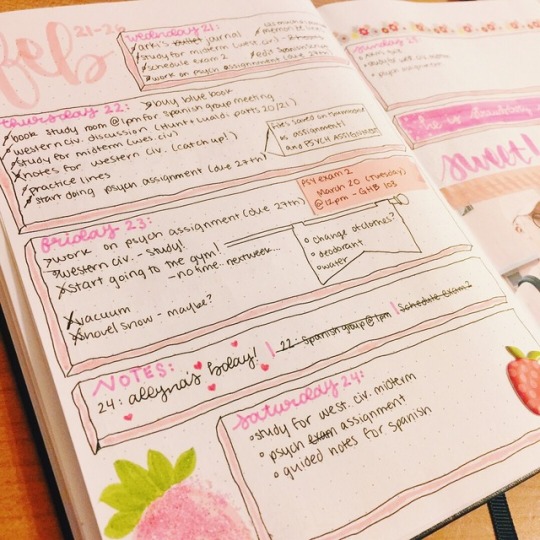 feb 21-26
wednesday 21:
journal
study for midterm (west. civ.)
schedule exam 2
work on psych assignment (due 27th)
thursday 22:
buy blue book
book study room @1pm for spanish group meeting
western civ. discussion (Hunt+Lualdi: parts 20/21)
study for midterm (wes. civ)
notes for western civ. (catch up!)
practice lines
start doing psych assignment (due 27th)
files saved on
as assignment1
and PSYCH ASSIGNMENT
friday 23:
PSY exam 2
March 20 (Tuesday)
@12pm - GHB 103
work on psych assignment (due 27th)
western civ. - study!
start going to the gym!
- no time.. next week...
change of clothes?
deodorant
water
vacuum
shovel snow - maybe?
NOTES:
24: allyna's bday! | 22: spanish group @ 1pm | Schedule Exam 2
saturday 24:
study for west. civ. midterm
psych exam assignment
guided notes for spanish
sunday 25
sweet!